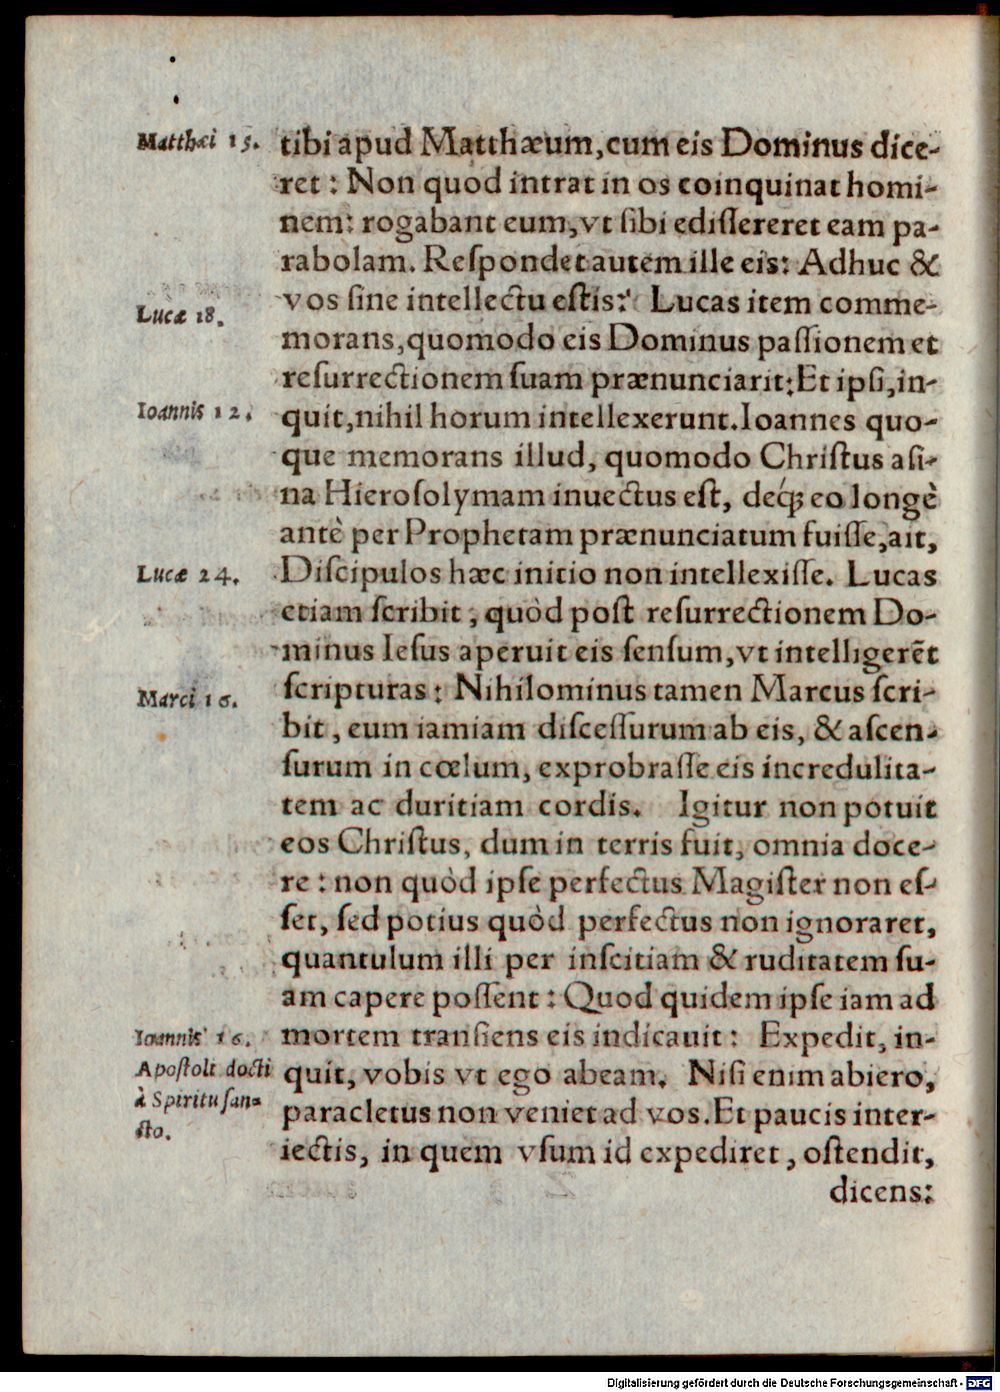 Matthæi 15.
tibi apud Matthæum, cum eis Dominus dice-
ret: Non quod intrat in os coinquinat homi-
nem: rogabant eum, vt sibi edissereret eam pa-
rabolam. Respondet autem ille eis: Adhuc &
vos sine intellectu estis? Lucas item comme-
Lucæ 18.
morans, quomodo eis Dominus passionem et
resurrectionem suam prænunciarit: Et ipsi, in-
Ioannis 12.
quit, nihil horum intellexerunt. Ioannes quo-
que memorans illud, quomodo Christus asi-
na Hierosolymam inuectus est, deq́; eo longè
antè per Prophetam prænunciatum fuisse, ait,
Lucæ 24.
Discipulos hæc initio non intellexisse. Lucas
etiam scribit, quòd post resurrectionem Do-
minus Iesus aperuit eis sensum, vt intelligerēt
scripturas: Nihilominus tamen Marcus scri-
Marci 16.
bit, eum iamiam discessurum ab eis, & ascen-
surum in cœlum, exprobrasse eis incredulita-
tem ac duritiam cordis. Igitur non potuit
eos Christus, dum in terris fuit, omnia doce-
re: non quòd ipse perfectus Magister non es-
set, sed potius quòd perfectus non ignoraret,
quantulum illi per inscitiam & ruditatem su-
am capere possent: Quod quidem ipse iam ad
Ioannis 16.
mortem transiens eis indicauit: Expedit, in-
Apostoli docti
quit, vobis vt ego abeam. Nisi enim abiero,
à Spiritu san-
paracletus non veniet ad vos. Et paucis inter-
cto.
iectis, in quem vsum id expediret, ostendit,
dicens:
Digitalisierung gefördert durch die Deutsche Forschungsgemeinschaft - DFG